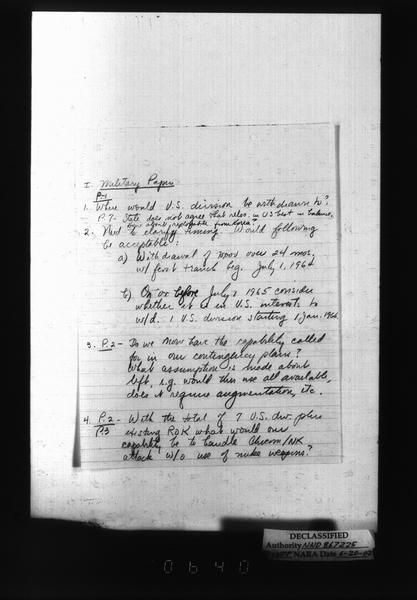 I. Military Paper
P-1
1. Where would U.S. division be withdrawn to?
P. 7 - State does not agree that relos. in US best in balance,
from Korea?
2. Need to clarify timing. Would following
be acceptable:
a) Withdrawal of 12,000 over 24 mos.
w/ first tranch beg. July 1, 1964
b) On or before July 1 1965 consider
whether it is in U.S. interests to
w/d. 1 U.S. division starting 1 Jan. 1966.
3. P. 2 - Do we now have the capability called
for in our contingency plans?
What assumption is made about
left, e.g. would this use all available,
does it require augmentation, etc.
4. P. 2 - With the total of 7 U.S. div. plus
P-3 existing ROK what would our
capability be to handle Chicom/NK
attack w/o use of nuke weapons?
DECLASSIFIED
Authority NND 867225
NARA Date 6-20-02
0640